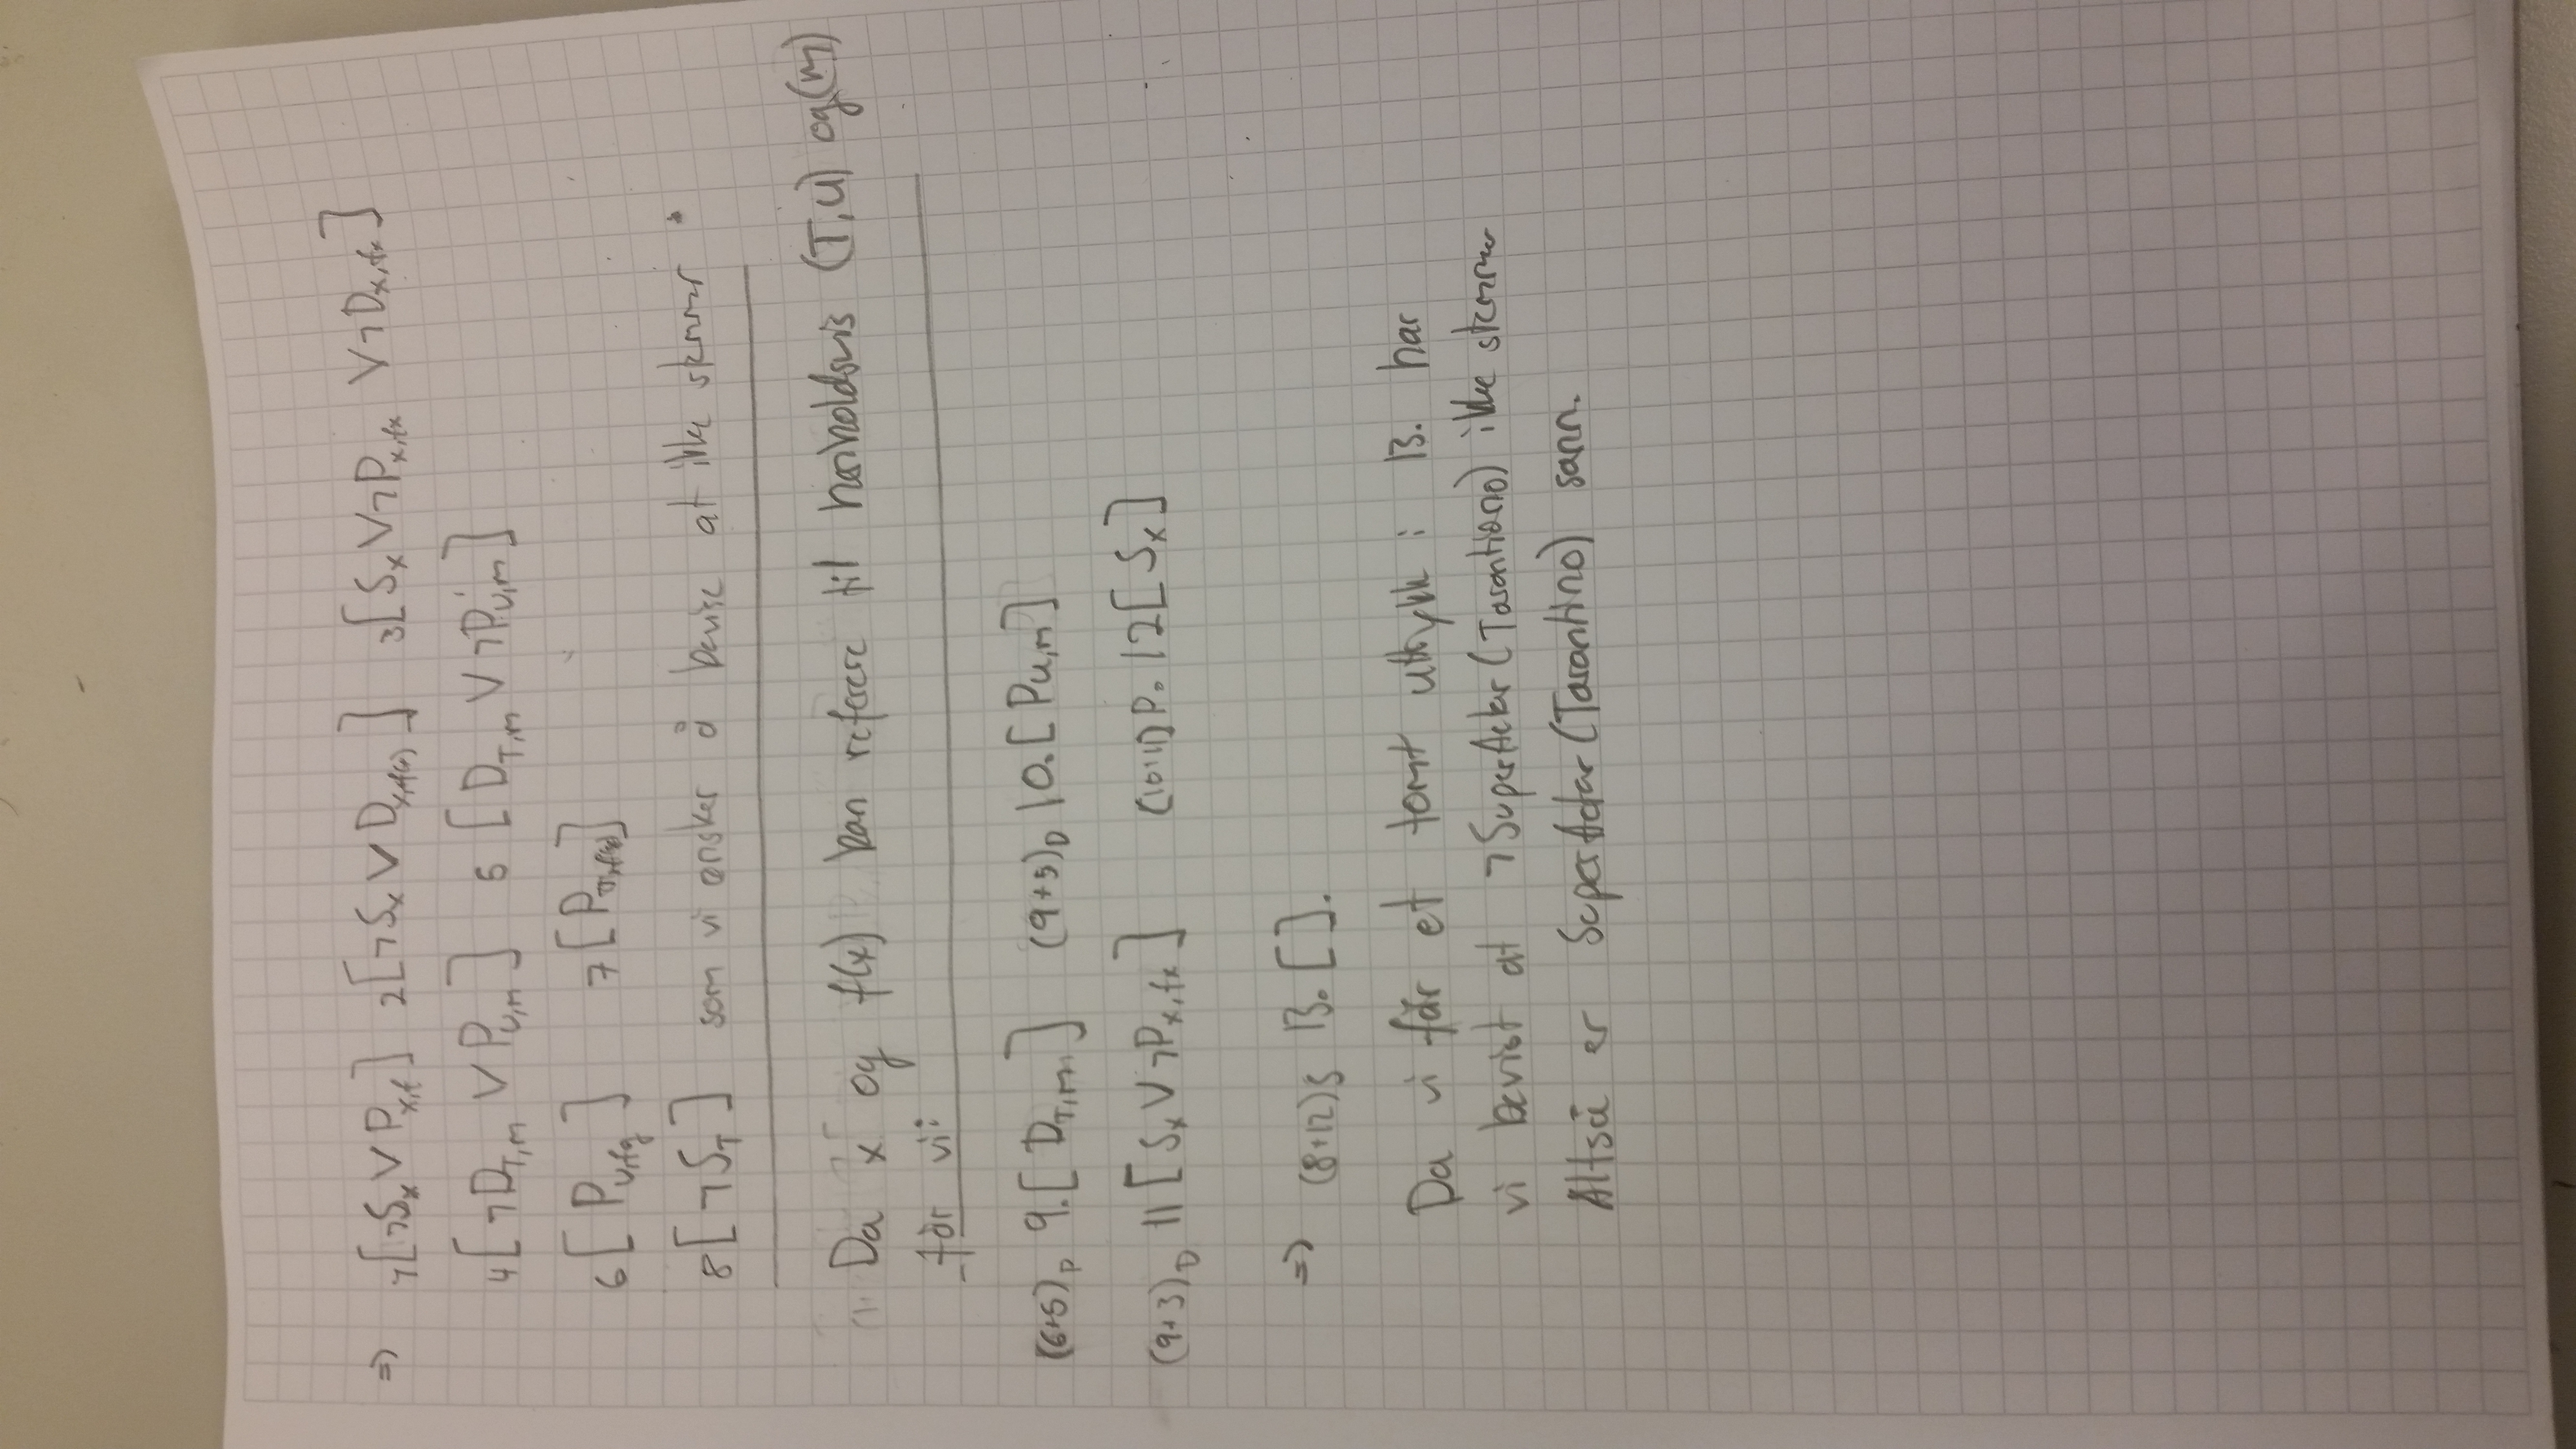 => 1[¬Sx ∨ Px,f] 2[¬Sx ∨ Dx,f(x)] 3[Sx ∨ ¬Px,fx ∨ ¬Dx,fx]
4[¬DT,m ∨ PU,m] 5 [DT,m ∨ ¬PU,m]
6[PU,fg] 7[]
8[¬ST] som vi ønsker å bevise at ikke stemmer
Da x og f(x) kan referere til henholdsvis (T,U) og (m)
får vi:
(6+5)P 9.[DT,m] (9+5)D 10.[PU,m]
(9+3)D 11[Sx ∨ ¬Px,fx] (10+11)P. 12[Sx]
=> (8+12)S 13. [].
Da vi får et tomt uttrykk i 13. har
vi bevist at ¬SuperActor(Tarantiono) ikke stemmer
Altså er SuperActor(Tarantino) sann.